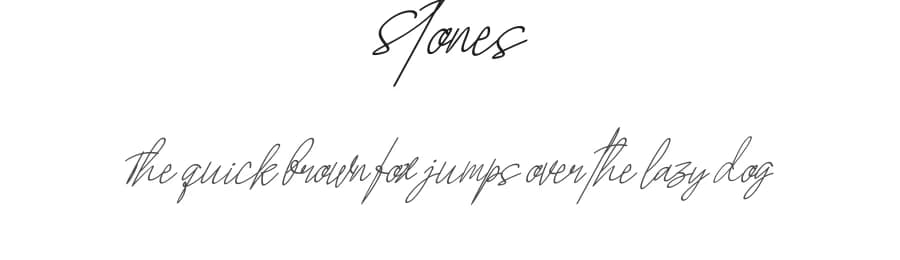 stones
the quick brown fox jumps over the lazy dog